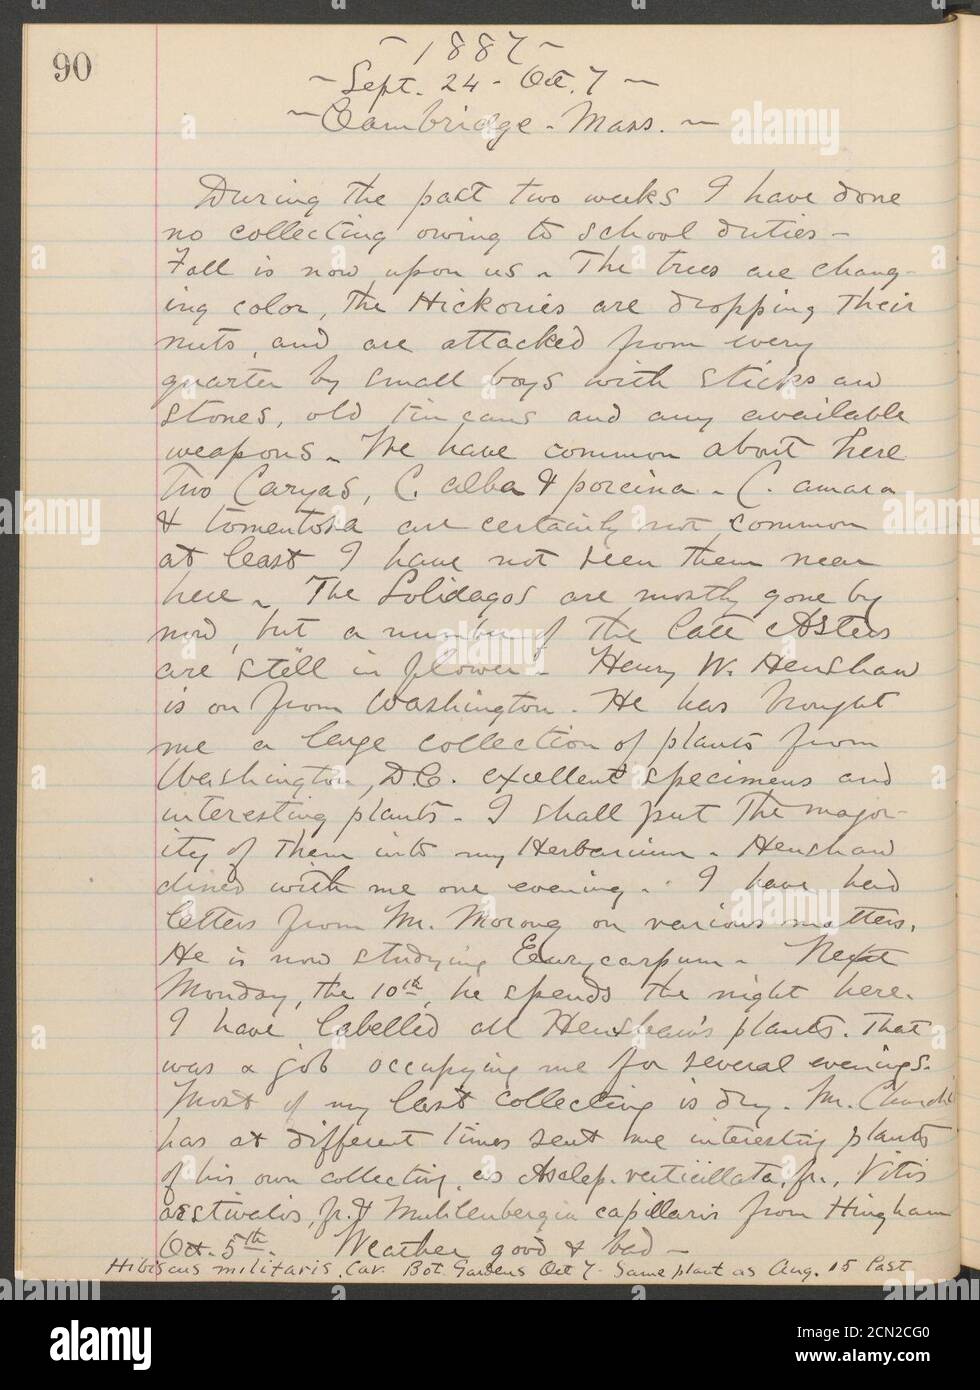 90
~ 1887 ~
~ Sept. 24 - Oct. 7 ~
~ Cambridge - Mass. ~
During the past two weeks I have done
no collecting owing to school duties -
Fall is now upon us - The trees are chang-
ing color, the Hickories are dropping their
nuts, and are attacked from every
quarter by small boys with sticks and
stones, old tin cans and any available
weapons - We have common about here
two Caryas, C. alba & porcina - C. amara
& tomentosa are certainly not common
at least I have not seen them near
here - The Solidagos are mostly gone by
now, but a number of the late Asters
are still in flower - Henry W. Henshaw
is on from Washington. He has brought
me a large collection of plants from
Washington, D.C. excellent specimens and
interesting plants - I shall put the major-
ity of them into my Herbarium - Henshaw
dined with me one evening - I have had
letters from Mr. Morong on various matters.
He is now studying Eleurycarpum - Next
Monday, the 10th, he spends the night here.
I have labelled all Henshaw's plants. That
was a job occupying me for several evenings.
Most of my last collecting is dry. Mr. Churchill
has at different times sent me interesting plants
of his own collecting, as Asclep. verticillata, fr., Vitis
aestivalis, fr. & Muhlenbergia capillaris from Hingham
Oct. 5th. Weather good & bad -
Hibiscus militaris, Cav. Bot. Gardens Oct 7 - Same plant as Aug. 15 Past
alamy
Image ID: 2CN2CG0
www.alamy.com